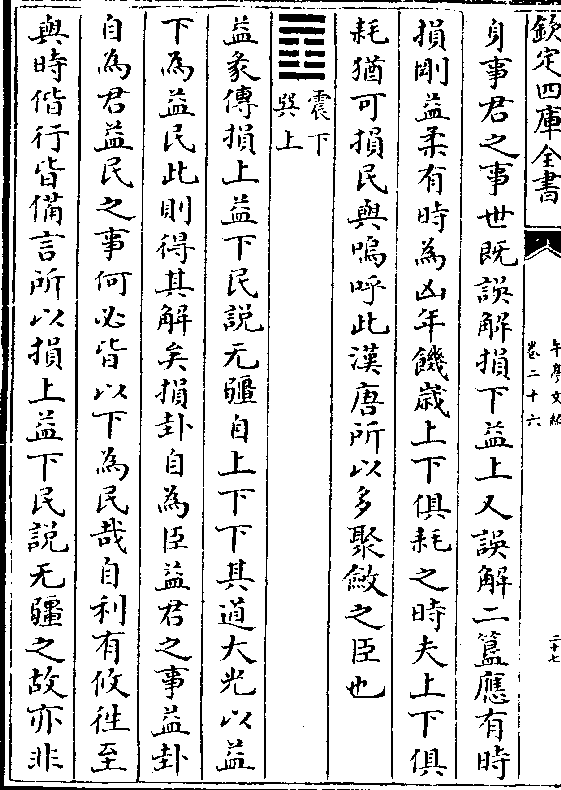 欽定四庫全書
卷二十六
二十七
身事君之事世既誤解損下益上又誤解二簋應有時
損剛益柔有時為凶年饑歲上下俱耗之時夫上下俱
耗猶可損民與嗚呼此漢唐所以多聚斂之臣也
震下
巽上
益彖傳損上益下民說无疆自上下下其道大光以益
下為益民此則得其解矣損卦自為臣益君之事益卦
自為君益民之事何必皆以下為民哉自利有攸往至
與時偕行皆備言所以損上益下民說无疆之故亦非